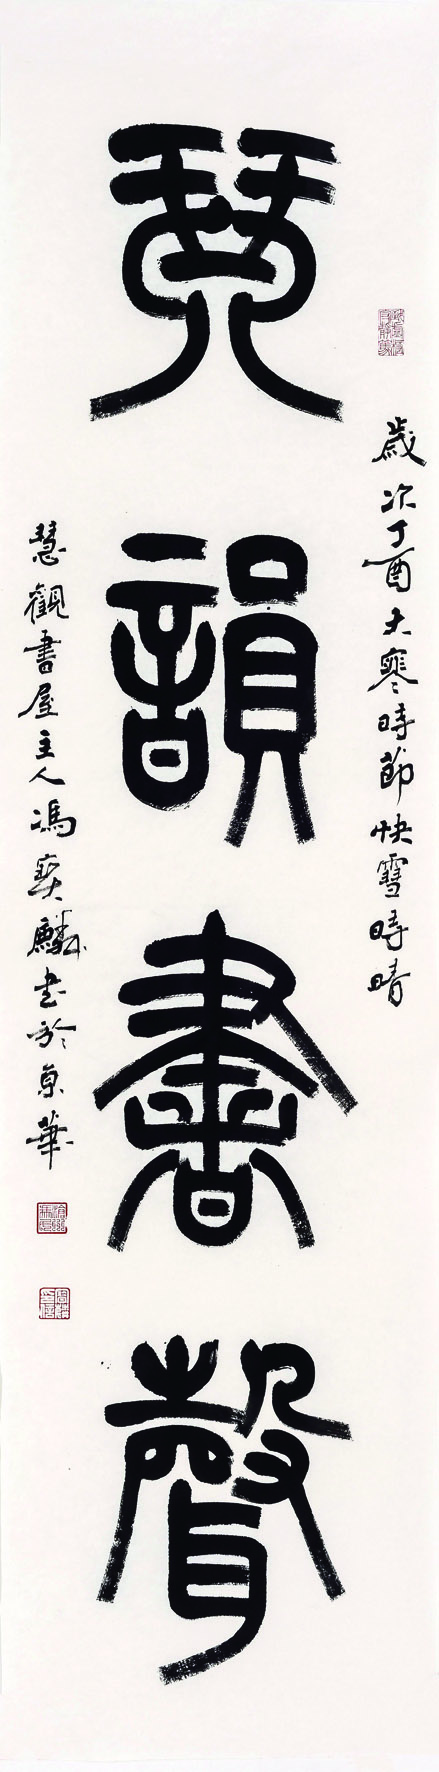 琴韻書聲
歲次丁酉大寒時節快雪時晴
慧觀書屋主人馮寶麟書於京華